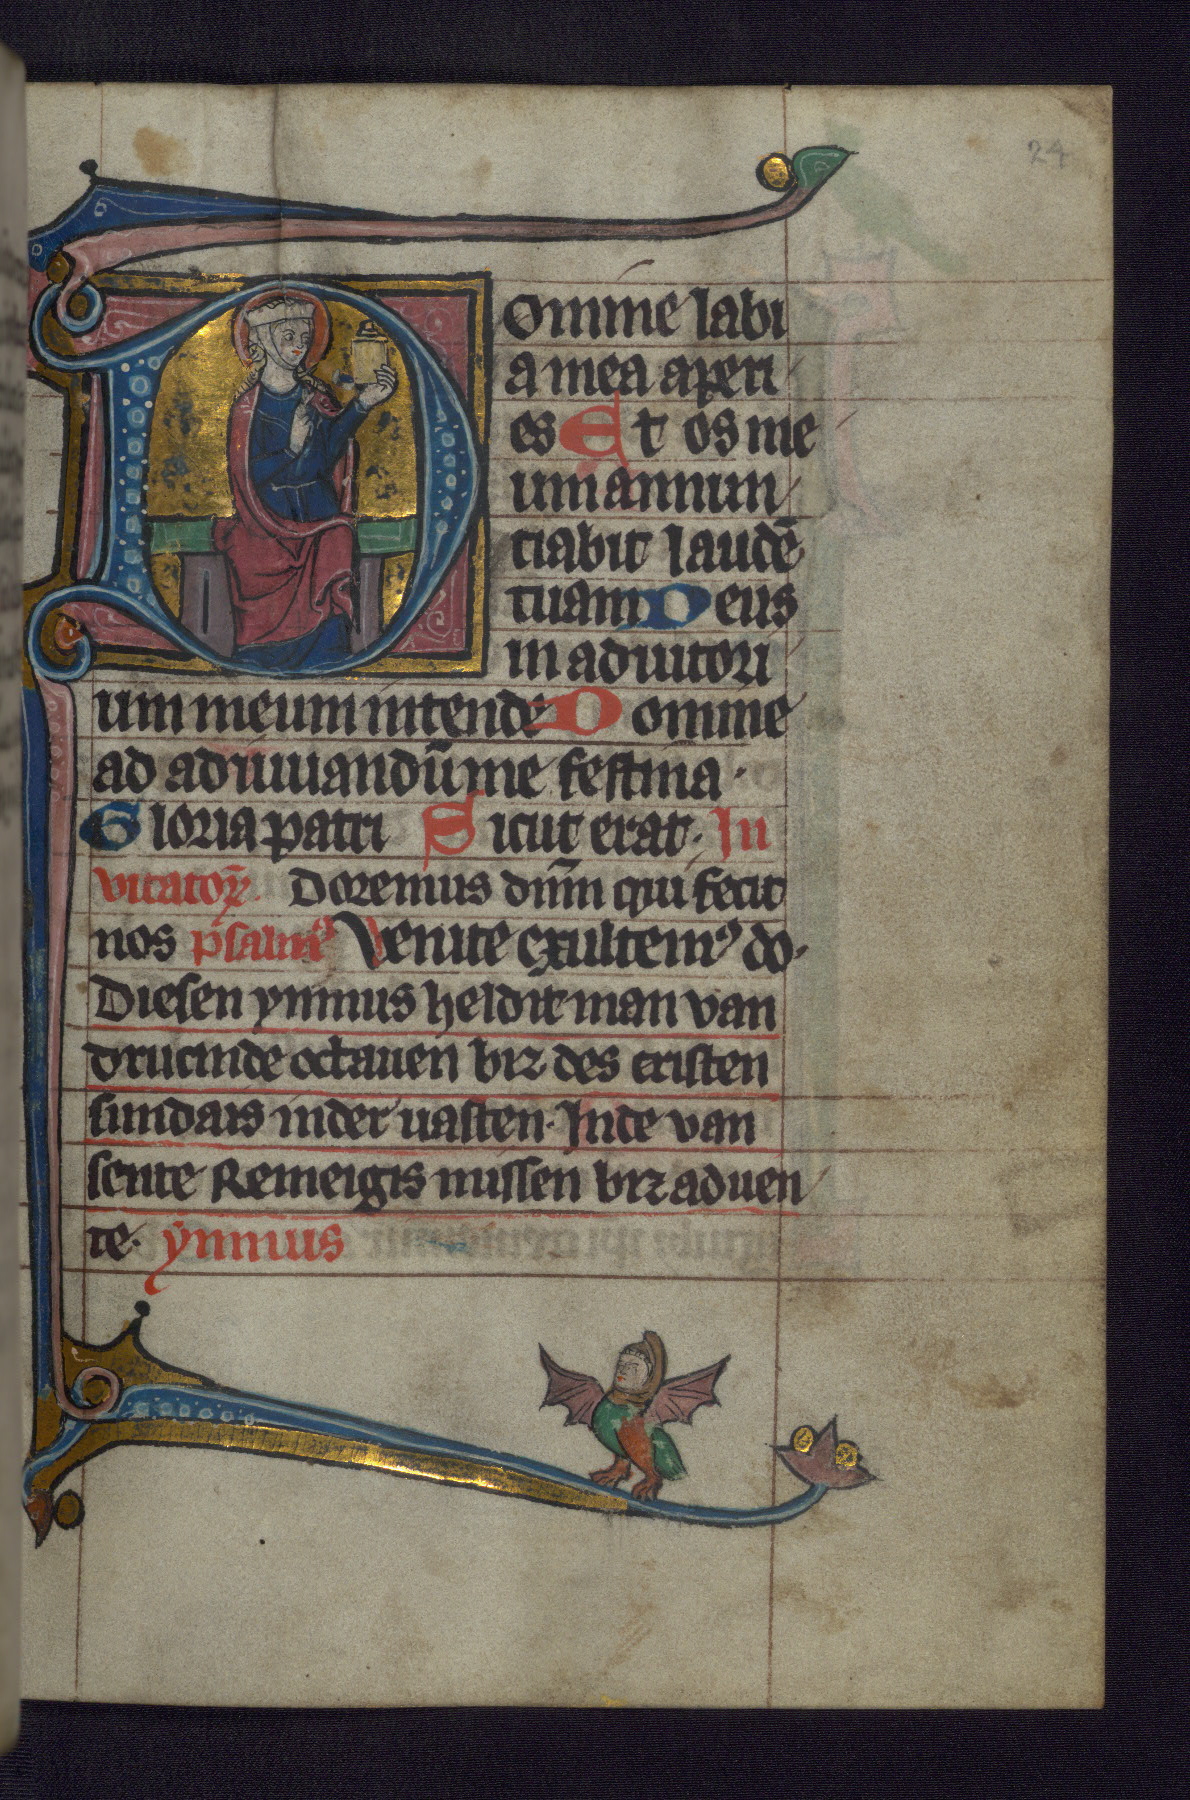 24
Domine labi
a mea aperi
es Et os me
um annun
tiabit laudē
tuam Deus
in adiutori
um meum intende Domine
ad adiuuandūme festina ·
Gloria patri Sicut erat · In
vitatoꝝ. Doremus dn̄m qui fecit
nos psalmꝰ Venite exultemꝰ do·
Diesen ynmus heldit man van
drucinde octauen biz des cristen
sundais in der uasten · Inde van
sente Remeigis missen biz aduen
te · ynmus